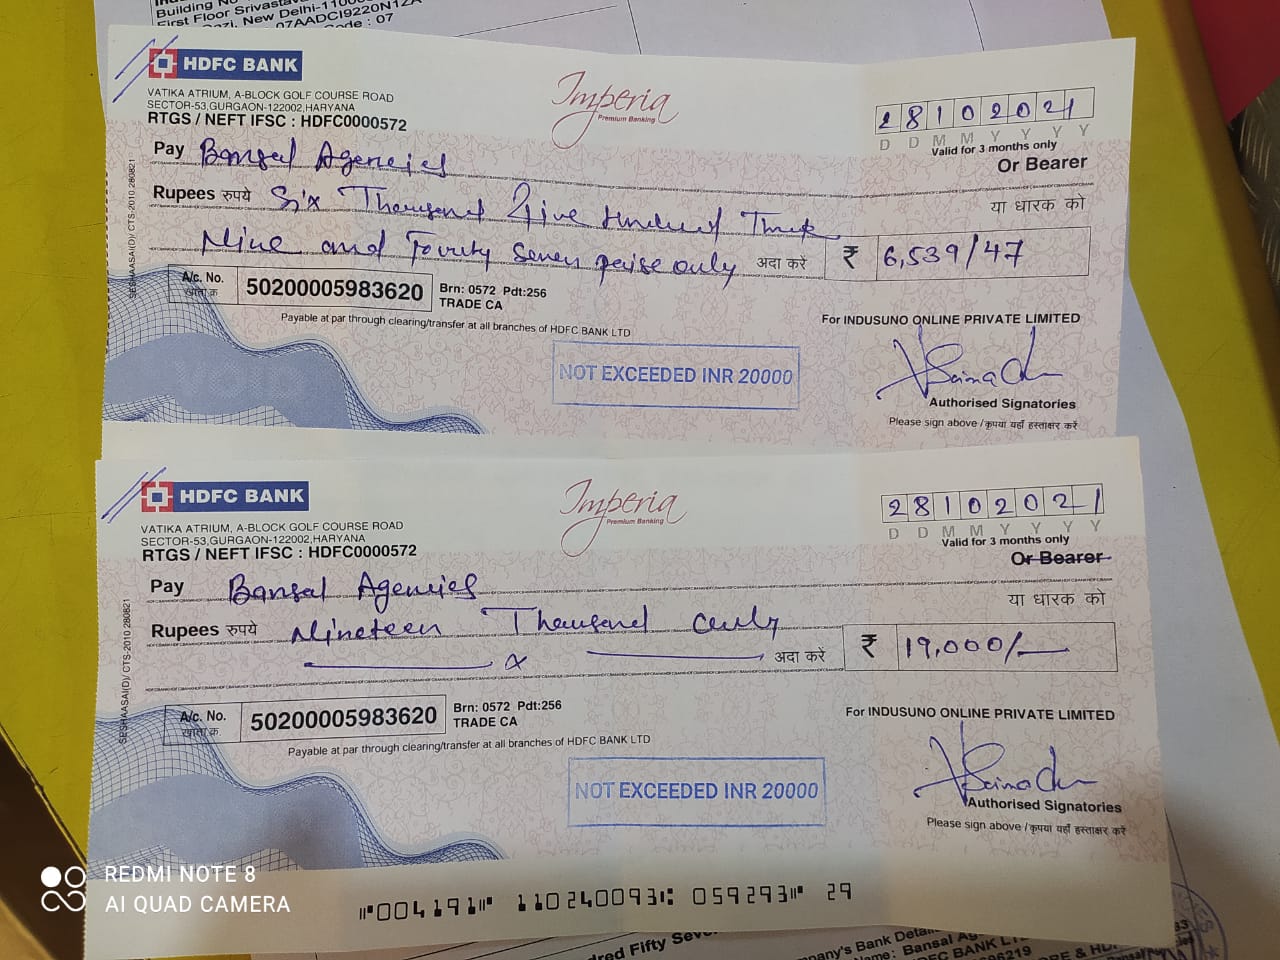 Building No
First Floor Srivastav
New Delhi-1100
07AADCI9220N1Z
Code : 07
HDFC BANK
VATIKA ATRIUM, A-BLOCK GOLF COURSE ROAD
SECTOR-53,GURGAON-122002,HARYANA
RTGS / NEFT IFSC : HDFC0000572
Imperia
Premium Banking
28102021
D D M M Y Y Y Y
Valid for 3 months only
Pay Bansal Agencies
Or Bearer
Rupees रुपये Six Thousand Five Hundred Thirty
या धारक को
Nine and Fourty Seven paise only अदा करें ₹ 6,539/47
SESHAASAI(D)/ CTS-2010 280821
A/c. No. 50200005983620 Brn: 0572 Pdt:256
खाता क्र. TRADE CA
Payable at par through clearing/transfer at all branches of HDFC BANK LTD
For INDUSUNO ONLINE PRIVATE LIMITED
NOT EXCEEDED INR 20000
Authorised Signatories
Please sign above /कृपया यहाँ हस्ताक्षर करें
HDFC BANK
VATIKA ATRIUM, A-BLOCK GOLF COURSE ROAD
SECTOR-53,GURGAON-122002,HARYANA
RTGS / NEFT IFSC : HDFC0000572
Imperia
Premium Banking
28102021
D D M M Y Y Y Y
Valid for 3 months only
Or Bearer
Pay Bansal Agencies
या धारक को
Rupees रुपये Nineteen Thousand only
x अदा करें ₹ 19,000/-
SESHAASAI(D)/ CTS-2010 280821
A/c. No. 50200005983620 Brn: 0572 Pdt:256
खाता क्र. TRADE CA
Payable at par through clearing/transfer at all branches of HDFC BANK LTD
For INDUSUNO ONLINE PRIVATE LIMITED
NOT EXCEEDED INR 20000
Authorised Signatories
Please sign above /कृपया यहाँ हस्ताक्षर करें
REDMI NOTE 8
AI QUAD CAMERA
⑈004191⑈ 110240093⑆ 059293⑈ 29
dred Fifty Seve
pany's Bank Detai
Name: Bansal Ag
HDFC BANK L